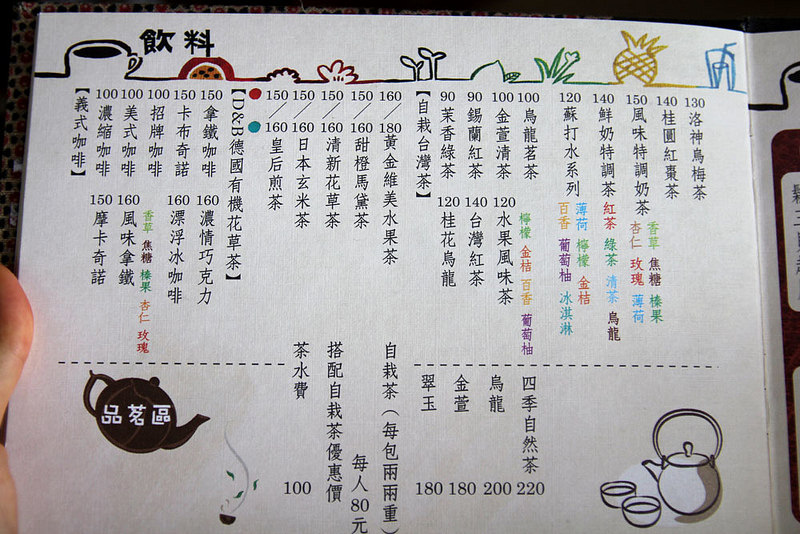 飲料
【義式咖啡】
100 濃縮咖啡
100 美式咖啡
100 招牌咖啡
150 卡布奇諾
150 拿鐵咖啡
150 摩卡奇諾
160 風味拿鐵
香草 焦糖 榛果 杏仁 玫瑰
160 漂浮冰咖啡
160 濃情巧克力
【D&B德國有機花草茶】
150／160 皇后煎茶
150／160 日本玄米茶
150／160 清新花草茶
150／160 甜橙馬黛茶
160／180 黃金維美水果茶
【自栽台灣茶】
90 茉香綠茶
90 錫蘭紅茶
100 金萱清茶
100 烏龍茗茶
120 桂花烏龍
140 台灣紅茶
120 水果風味茶
檸檬 金桔 百香 葡萄柚
120 蘇打水系列
百香 葡萄柚 冰淇淋
薄荷 檸檬 金桔
140 鮮奶特調茶
紅茶 綠茶 清茶 烏龍
150 風味特調奶茶
杏仁 玫瑰 薄荷
香草 焦糖 榛果
140 桂圓紅棗茶
130 洛神烏梅茶
品茗區
茶水費 100
搭配自栽茶優惠價
每人80元
自栽茶（每包兩兩重）
翠玉 180
金萱 180
烏龍 200
四季自然茶 220